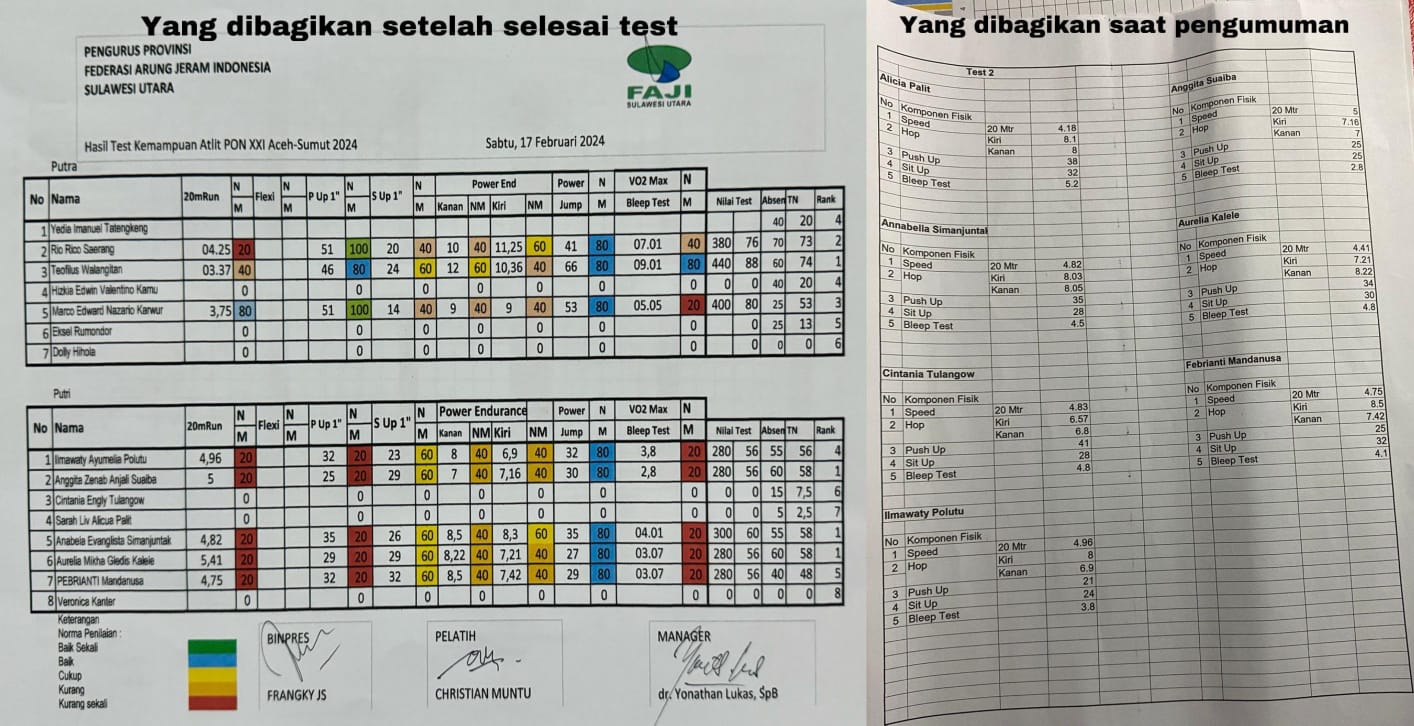 Yang dibagikan setelah selesai test
PENGURUS PROVINSI
FEDERASI ARUNG JERAM INDONESIA
SULAWESI UTARA
FAJI
SULAWESI UTARA
Hasil Test Kemampuan Atlit PON XXI Aceh-Sumut 2024 Sabtu, 17 Februari 2024
Putra
No Nama 20mRun N M Flexi N M P Up 1" N M S Up 1" N M Power End Kanan NM Kiri NM Power Jump N M VO2 Max Bleep Test N M Nilai Test Absen TN Rank
1 Yedia Imanuel Tatengkeng 40 20 4
2 Rio Rico Saerang 04.25 20 51 100 20 40 10 40 11,25 60 41 80 07.01 40 380 76 70 73 2
3 Teofilus Walangitan 03.37 40 46 80 24 60 12 60 10,36 40 66 80 09.01 80 440 88 60 74 1
4 Hizkia Edwin Valentino Kamu 0 0 0 0 0 0 0 0 0 40 20 4
5 Marco Edward Nazario Karwur 3,75 80 51 100 14 40 9 40 9 40 53 80 05.05 20 400 80 25 53 3
6 Eksel Rumondor 0 0 0 0 0 0 0 0 25 13 5
7 Dolly Hihola 0 0 0 0 0 0 0 0 0 0 0 6
Putri
No Nama 20mRun N M Flexi N M P Up 1" N M S Up 1" N M Power Endurance Kanan NM Kiri NM Power Jump N M VO2 Max Bleep Test N M Nilai Test Absen TN Rank
1 Ilmawaty Ayumelia Polutu 4,96 20 32 20 23 60 8 40 6,9 40 32 80 3,8 20 280 56 55 56 4
2 Anggita Zenab Anjali Suaiba 5 20 25 20 29 60 7 40 7,16 40 30 80 2,8 20 280 56 60 58 1
3 Cintania Engly Tulangow 0 0 0 0 0 0 0 0 0 15 7,5 6
4 Sarah Liv Alicua Palit 0 0 0 0 0 0 0 0 0 5 2,5 7
5 Anabela Evanglista Simanjuntak 4,82 20 35 20 26 60 8,5 40 8,3 60 35 80 04.01 20 300 60 55 58 1
6 Aurelia Mikha Gledis Kalele 5,41 20 29 20 29 60 8,22 40 7,21 40 27 80 03.07 20 280 56 60 58 1
7 PEBRIANTI Mandanusa 4,75 20 32 20 32 60 8,5 40 7,42 40 29 80 03.07 20 280 56 40 48 5
8 Veronica Kanter 0 0 0 0 0 0 0 0 0 0 0 8
Keterangan
Norma Penilaian :
Baik Sekali
Baik
Cukup
Kurang
Kurang sekali
BINPRES
FRANGKY JS
PELATIH
CHRISTIAN MUNTU
MANAGER
dr. Yonathan Lukas, SpB
Yang dibagikan saat pengumuman
Test 2
Alicia Palit
No Komponen Fisik
1 Speed 20 Mtr 4.18
2 Hop Kiri 8.1
Kanan 8
3 Push Up 38
4 Sit Up 32
5 Bleep Test 5.2
Annabella Simanjuntal
No Komponen Fisik
1 Speed 20 Mtr 4.82
2 Hop Kiri 8.03
Kanan 8.05
3 Push Up 35
4 Sit Up 28
5 Bleep Test 4.5
Cintania Tulangow
No Komponen Fisik
1 Speed 20 Mtr 4.83
2 Hop Kiri 6.57
Kanan 6.8
3 Push Up 41
4 Sit Up 28
5 Bleep Test 4.8
Ilmawaty Polutu
No Komponen Fisik
1 Speed 20 Mtr 4.96
2 Hop Kiri 8
Kanan 6.9
3 Push Up 21
4 Sit Up 24
5 Bleep Test 3.8
Anggita Suaiba
No Komponen Fisik
1 Speed 20 Mtr 5
2 Hop Kiri 7.16
Kanan 7
3 Push Up 25
4 Sit Up 25
5 Bleep Test 2.8
Aurelia Kalele
No Komponen Fisik
1 Speed 20 Mtr 4.41
2 Hop Kiri 7.21
Kanan 8.22
3 Push Up 34
4 Sit Up 30
5 Bleep Test 4.8
Febrianti Mandanusa
No Komponen Fisik
1 Speed 20 Mtr 4.75
2 Hop Kiri 8.5
Kanan 7.42
3 Push Up 25
4 Sit Up 32
5 Bleep Test 4.1